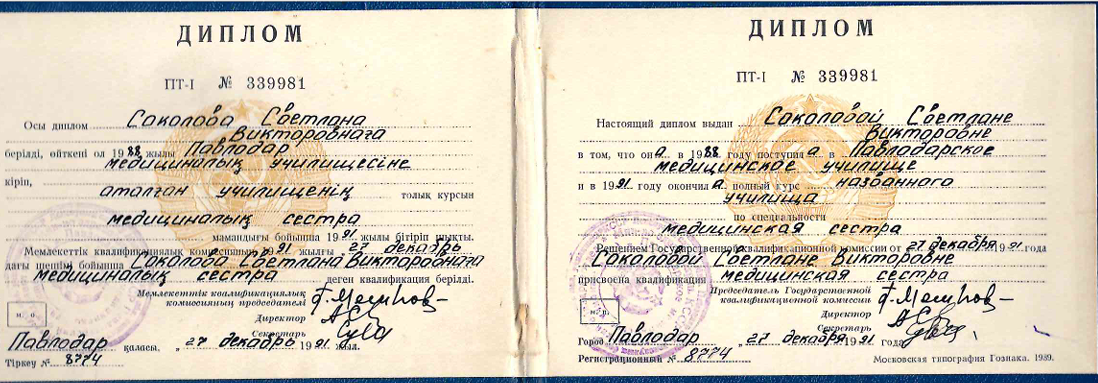 ДИПЛОМ
ПТ-I № 339981
Осы диплом Соколова Светлана
Викторовнаға
берілді, өйткені ол 1988 жылы Павлодар
медициналық училищесіне
кіріп,
аталған училищенің толық курсын
медициналық сестра
мамандығы бойынша 1991 жылы бітіріп шықты.
Мемлекеттік квалификациялық комиссияның 1991 жылғы 27 декабрь
дағы шешімі бойынша Соколова Светлана Викторовнаға
медициналық сестра деген квалификация берілді.
Мемлекеттік квалификациялық
комиссияның председателі
Директор
Секретарь
м. о.
Павлодар қаласы, „ 27 декабрь 1991 жыл.
Тіркеу № 8774
ДИПЛОМ
ПТ-I № 339981
Настоящий диплом выдан Соколовой Светлане
Викторовне
в том, что она в 1988 году поступила в Павлодарское
медицинское училище
и в 1991 году окончила полный курс названного
училища
по специальности
медицинская сестра
Решением Государственной квалификационной комиссии от 27 декабря 1991 года
Соколовой Светлане Викторовне
присвоена квалификация медицинская сестра
Председатель Государственной
квалификационной комиссии
Директор
Секретарь
м. п.
Город Павлодар „ 27 декабря 1991 года
Регистрационный № 8774
Московская типография Гознака. 1989.